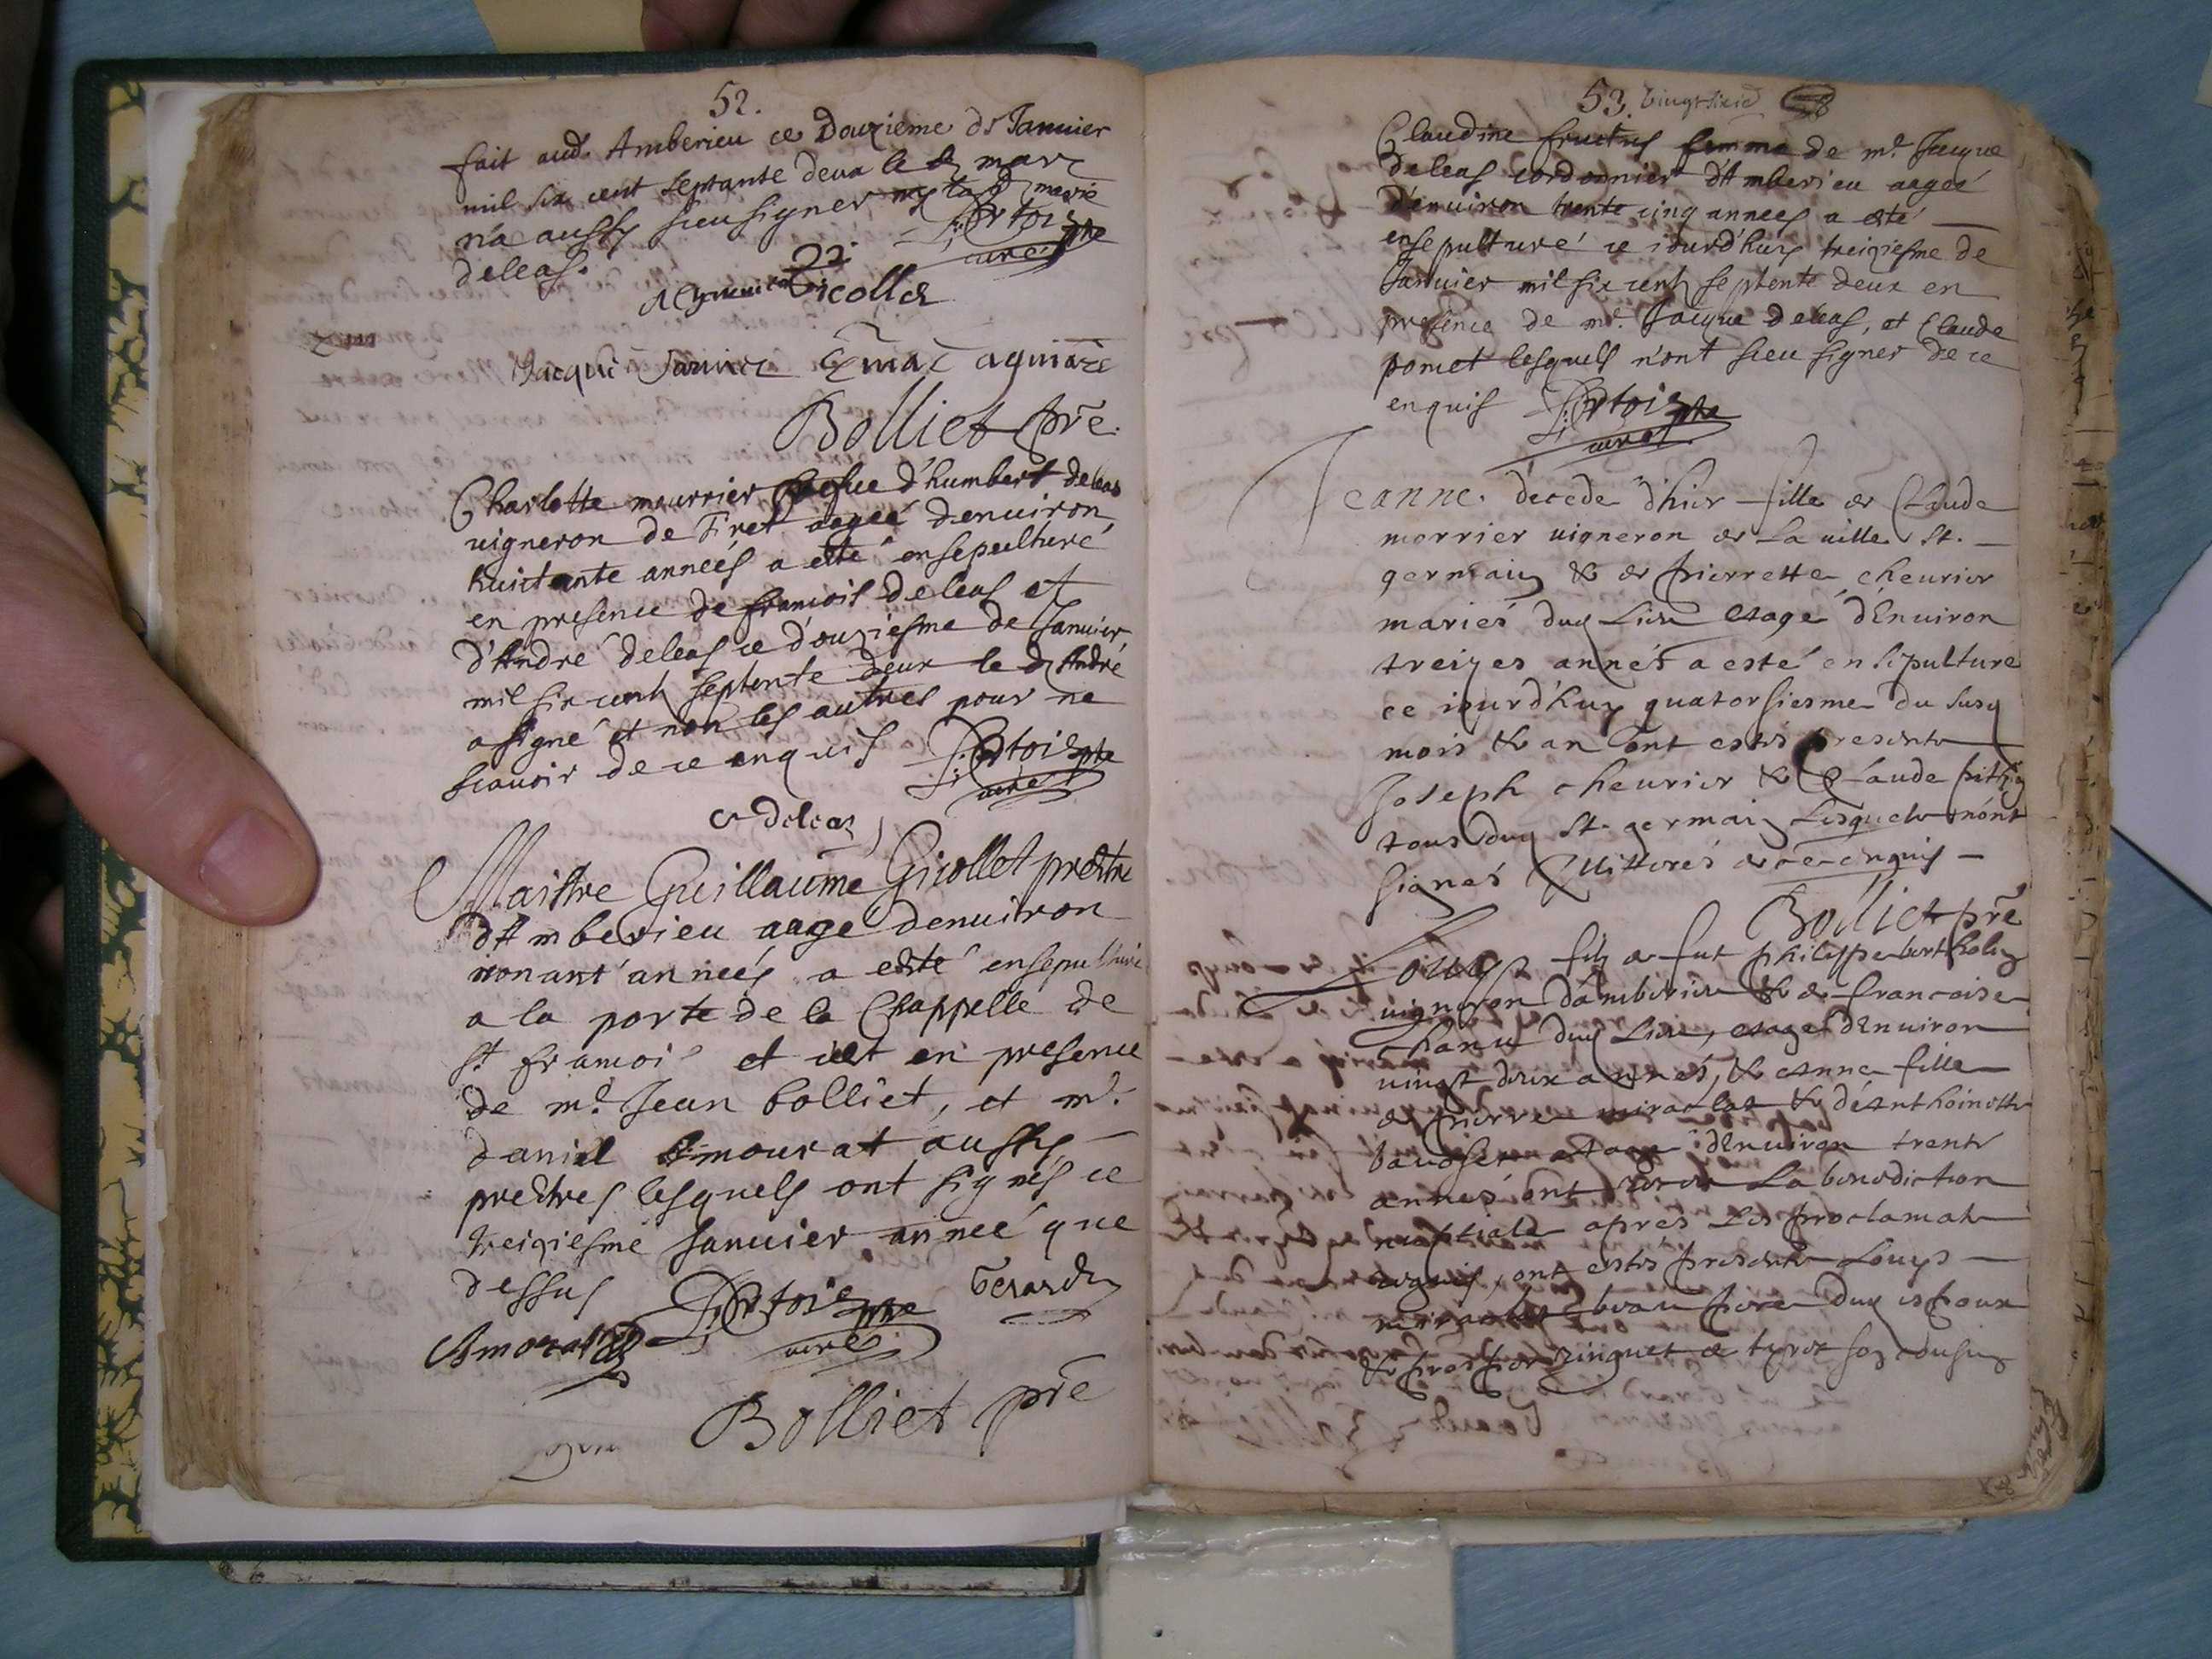 52.
fait aud. Amberieu ce Douzieme de Januier
mil six cent septante deux le d. marc
n'a aussy sceu signer ny lad. marie
deleas.
curé
Gicollet
Jacque Januier
Bolliet pre.
Charlotte mourrier d'humbert deleas
uigneron de Tiret aageé denuiron
huictante anneés a esté ensepulturé
en presence de francois deleas et
d'André deleas ce d'ouziesme de Januier
mil six cent septente deux le d. André
a signé et non les autres pour ne
scauoir de ce enquis
curé
deleas
Maistre Guillaume Gicollet prestre
dAmberieu aagé denuiron
nonant' anneés a esté ensepulturé
a la porte de la Chappelle de
st. francois et cest en presence
de mr. Jean bolliet, et mr.
daniel amourat aussy
prestres lesquels ont signés ce
treiziesme Januier anneé que
dessus
Gerard
Amorat
curé
Bolliet pre
53. vingt sixie
Claudine fructus femme de mr. Jacque
deleas cordonnier d'Amberieu aageé
d'enuiron trente cinq anneés a esté
ensepulturé ce iourd'huy treiziesme de
Januier mil six cent septente deux en
presence de mr. Jacque deleas, et Claude
pomet lesquels n'ont sceu signer de ce
enquis
curé
Jeanne decede d'hier fille de Claude
morrier uigneron de La uille St.
germain & de pierrette cheurier
mariés dud Lieu eagé d'Enuiron
treizes annés a esté ensepulture
ce iourd'huy quatorsiesme du susd
mois & an ont estés presents
Joseph cheurier & Claude
tous dud St. germain Lesquels n'ont
signés de ce enquis
Bolliet pre
Louys filz de fut philippe bertholin
uigneron d'amberieu & de francoise
dud Lieu, eagé d'Enuiron
uingt deux annés, & eanne fille
de pierre miraclat & d'eanthoinette
eagee d'Enuiron trente
annes ont La benediction
nuptiale apres Les proclamats
requis, ont estés presents Louys
miraclat beau frere dud espoux
& prosper ringuet de tyret son cousin